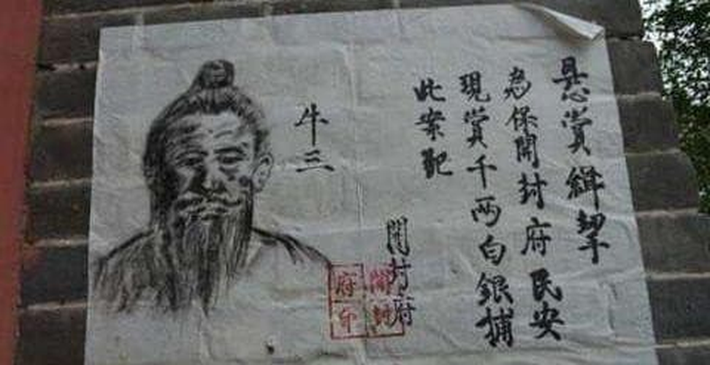 悬賞緝挈
為保開封府民安
現賞千两白銀捕
此案犯
牛三
開封府
開封
府印